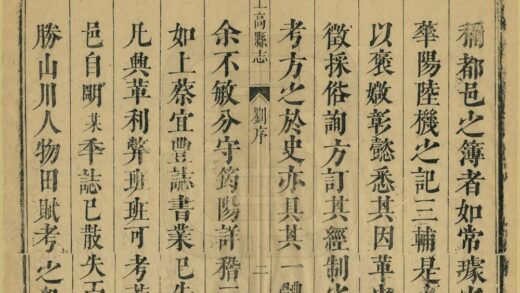 稱都邑之簿者如常璩
華陽陸機之記三輔是
以褒媺彰懿悉其因革
徵採俗詢方訂其經制
考方之於史亦具其一體
上高縣志 劉序 二
余不敏分守筠陽詳稽
如上蔡宜豐誌書業已
凡興革利弊班班可考
邑自明某季誌已散失
勝山川人物田賦考之